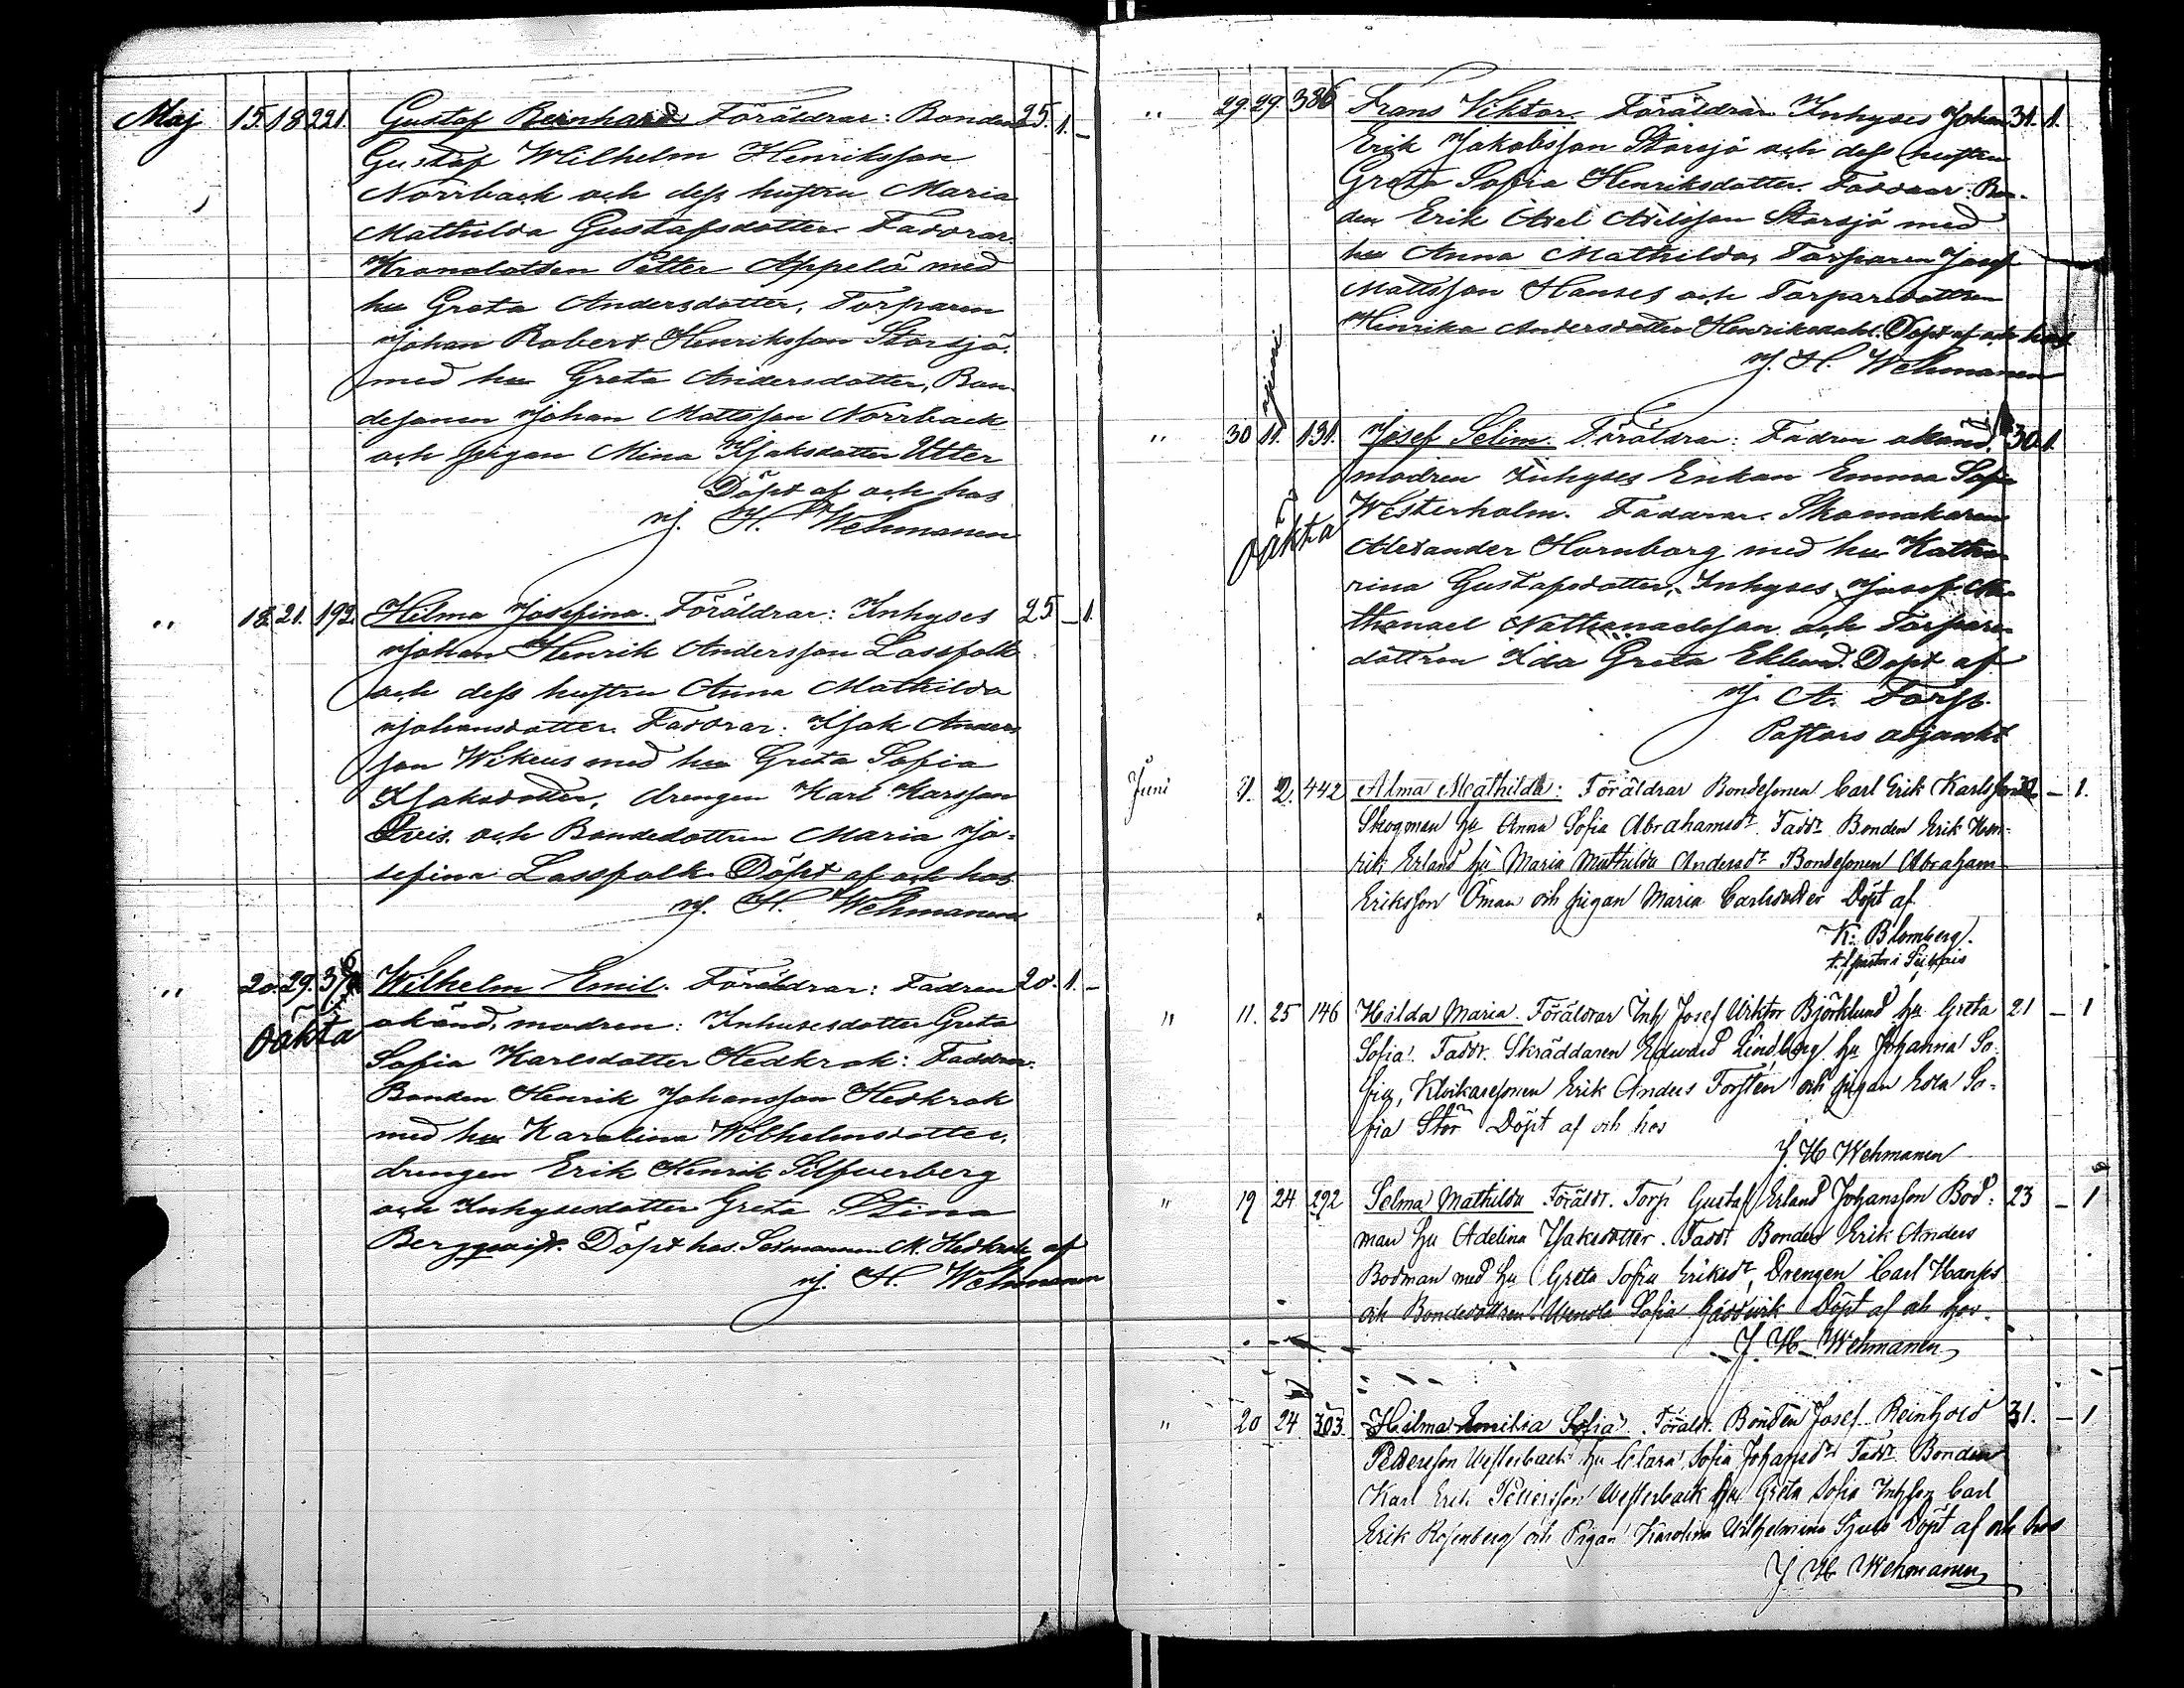 Maj 15. 18 221. Gustaf Reinhard Föräldrar: Bonden 25. 1. –
Gustaf Wilhelm Henriksson
Norrback och dess hustru Maria
Mathilda Gustafsdotter. Faddrar.
Kronolotsen Petter Appelö med
hu Greta Andersdotter, Torparen
Johan Robert Henriksson Storsjö.
med hu Greta Andersdotter, Bon-
desonen Johan Mattsson Norrback
och pigan Mina Isaksdotter Utter
Döpt af och hos
J. H. Wehmanen
" 18. 21. 192. Hilma Josefina. Föräldrar: Inhyses 25 – 1.
Johan Henrik Andersson Lassfolk
och dess hustru Anna Mathilda
Johansdotter. Faddrar: Isak Anders
son Wikeus med hu Greta Sofia
Isaksdotter, drengen Karl Karsson
och Bondedottren Maria Jo-
sefina Lassfolk. Döpt af och hos
J. H. Wehmanen
" 20. 29. Wilhelm Emil. Föräldrar: Fadren 20. 1. –
Oäkta
okänd, modren: Inhysesdotter Greta
Sofia Karlsdotter Hedkrok: Faddrar.
Bonden Henrik Johansson Hedkrok
med hu Karolina Wilhelmsdotter,
drengen Erik Henrik Silfverberg
och Inhysesdotter Greta Stina
Bergqvist. Döpt hos Sexmannen M. Hedkrok af
J. H. Wehmanen
" 29. 29. 386 Frans Viktor. Föräldrar Inhyses Johan 31. 1.
Erik Jakobsson Storsjö och dess hustru
Greta Sofia Henriksdotter. Faddrar: Bon-
den Erik Axel Axelsson Storsjö med
hu Anna Mathilda, Torparen Josef
Mattsson Hanses och Torparedottren
Henrika Andersdotter Henriksdahl. Döpt af och hos
J. H. Wehmanen
" 30 11. Juni 131. Josef Selim. Föräldrar: Fadren okänd, 30. 1.
modren Inhyses Enkan Emma Sofia
Oäkta
Westerholm. Faddrar. Skomakaren
Alexander Hornborg med hu Katha-
rina Gustafsdotter, Inhyses Josef Na-
thanael Nathanaelsson och Torpare-
dottren Ida Greta Eklund. Döpt af
J. A. Forss.
Pastors adjunkt
Juni 1. 2. 442 Alma Mathilda: Föräldrar Bondesonen Carl Erik Karlsson – 1.
Skogman hu Anna Sofia Abrahamsdr Faddr Bonden Erik Hen-
rik Erland hu Maria Mathilda Andersdr Bondesonen Abraham
Eriksson Öman och pigan Maria Carlsdotter Döpt af
K. Blomberg.
" 11. 25 146 Hilda Maria. Föräldrar Inh Josef Viktor Björklund hu Greta 21 – 1
Sofia. Faddr. Skräddaren Edward Lindberg hu Johanna So-
fia, Klockaresonen Erik Anders Forstén och pigan Eva So-
fia Stor Döpt af och hos
J H Wehmanen
" 19 24 292 Selma Mathilda Föräldr. Torp Gustaf Erland Johansson Bod- 23 – 1
man hu Adelina Isaksdotter. Faddr Bonden Erik Anders
Bodman med hu Greta Sofia Eriksdr, Drengen Carl Hanses
och Bondedottren Wendla Sofia Gäddvik Döpt af och hos.
J. H. Wehmanen
" 20 24 303. Hilma Emilia Sofia. Föräldr. Bonden Josef Reinhold 31. – 1
Pettersson Westerback hu Clara Sofia Johansdr Faddr Bonden
Karl Erik Pettersson Westerback hu Greta Sofia Inhson Carl
Erik Rosenberg och Pigan Karolina Wilhelmina Döpt af och hos
J H Wehmanen